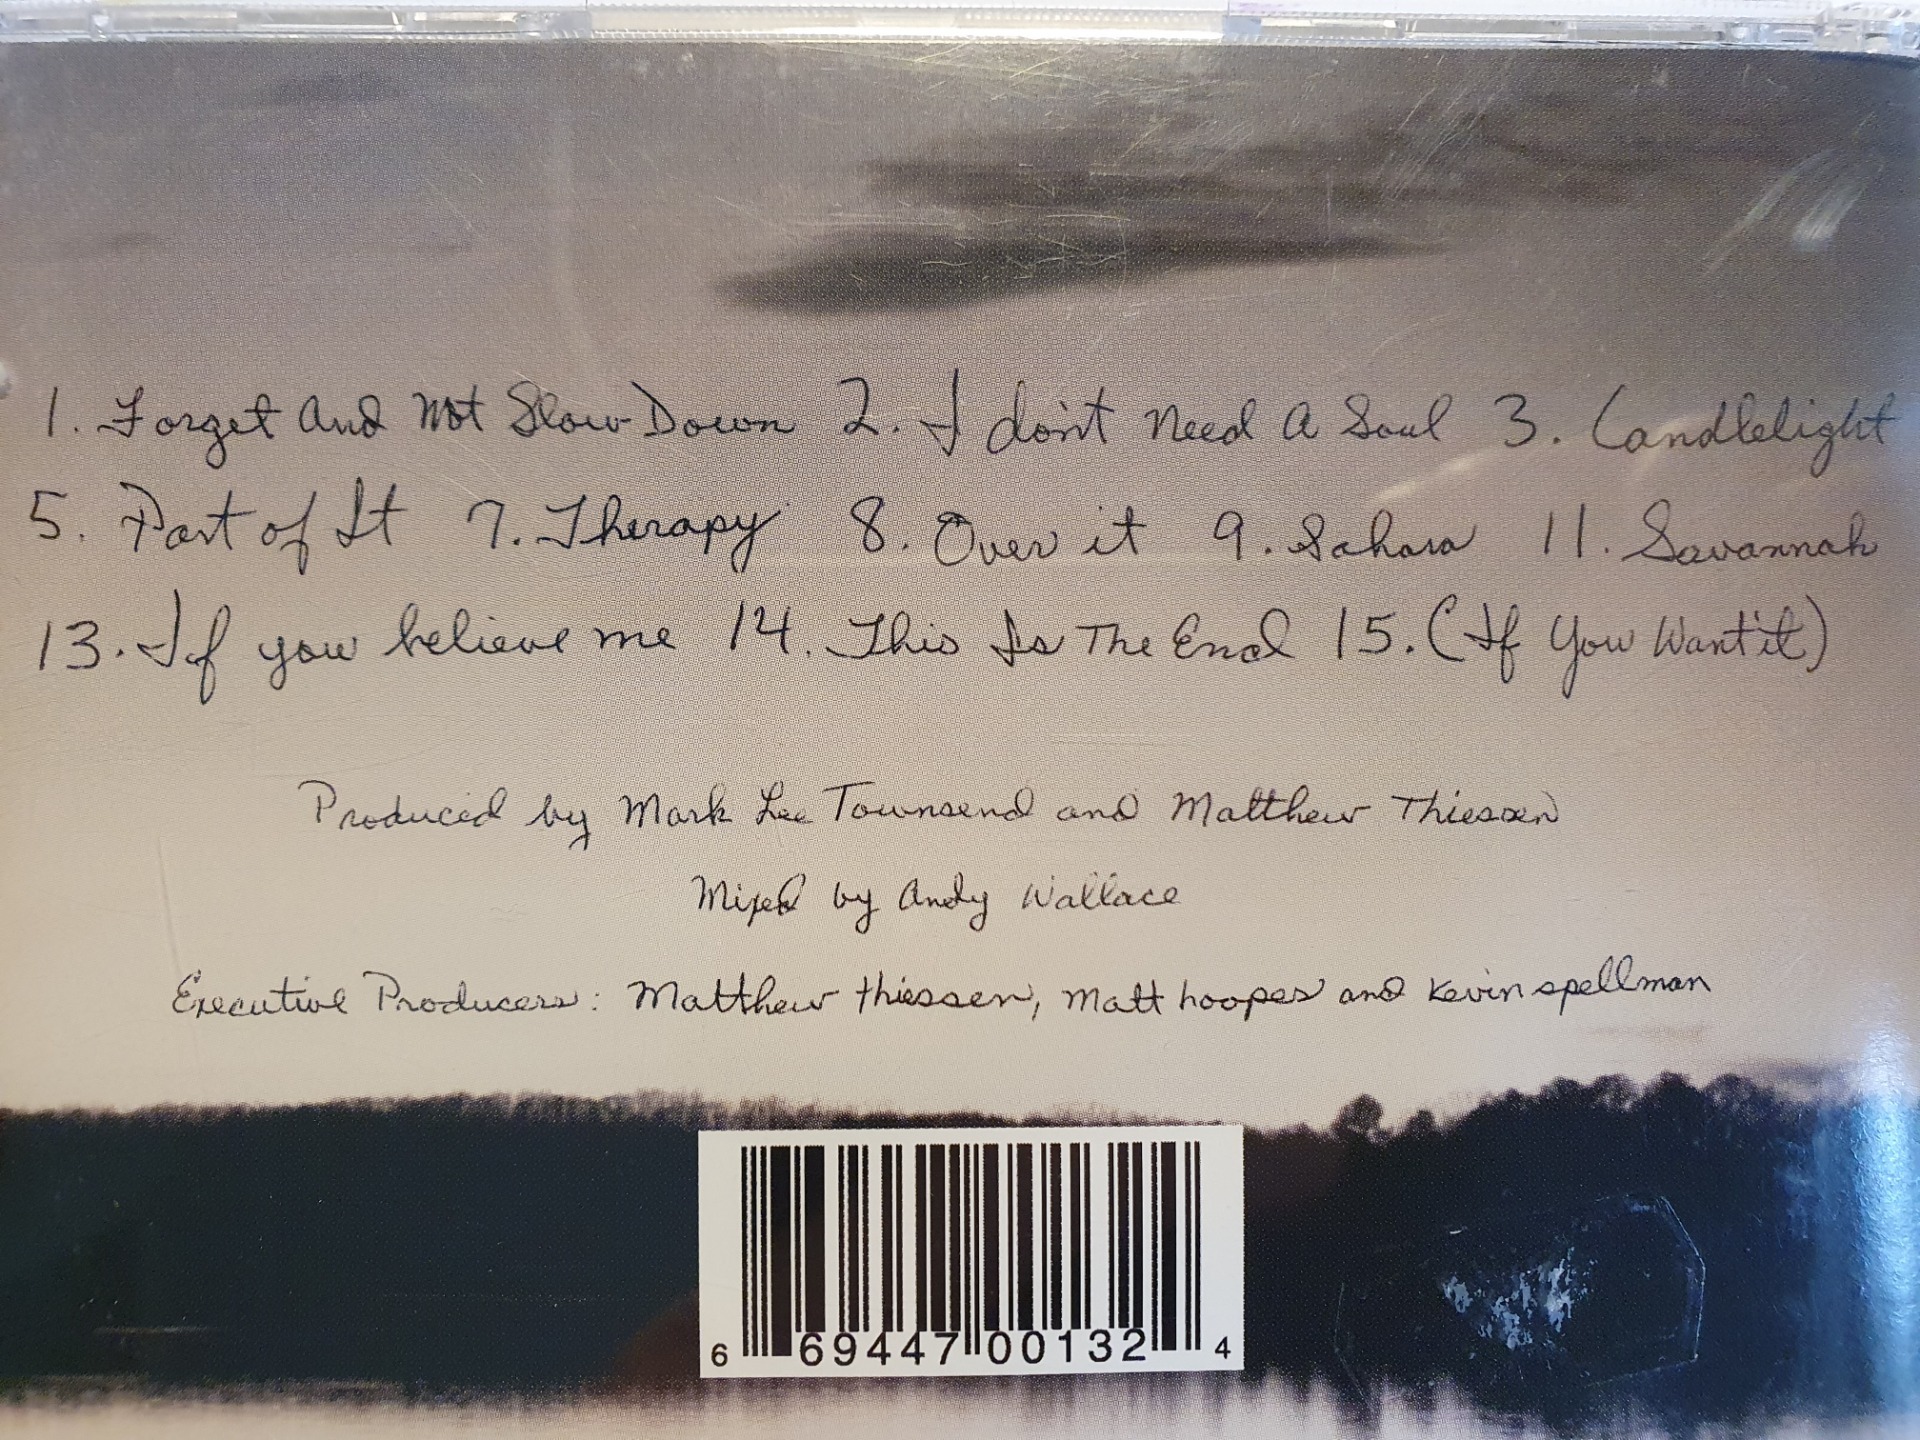 1. Forget And Not Slow Down 2. I don't Need A Soul 3. Candlelight
5. Part of It 7. Therapy 8. Over it 9. Sahara 11. Savannah
13. If you believe me 14. This Is The End 15. (If You Want it)
Produced by Mark Lee Townsend and Matthew Thiessen
Mixed by Andy Wallace
Executive Producers: Matthew thiessen, matt hoopes and kevin spellman
6 69447 00132 4